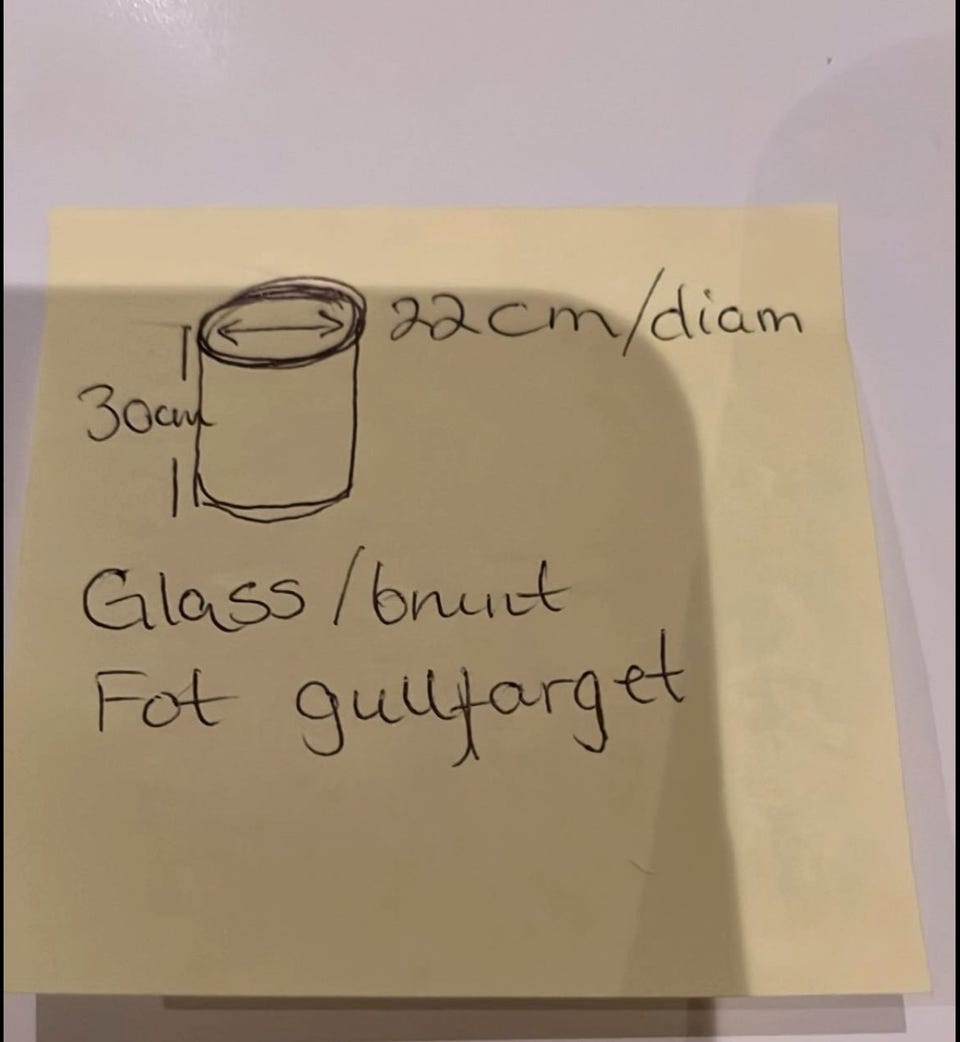 22cm/diam
30cm
Glass/brunt
Fot gullfarget